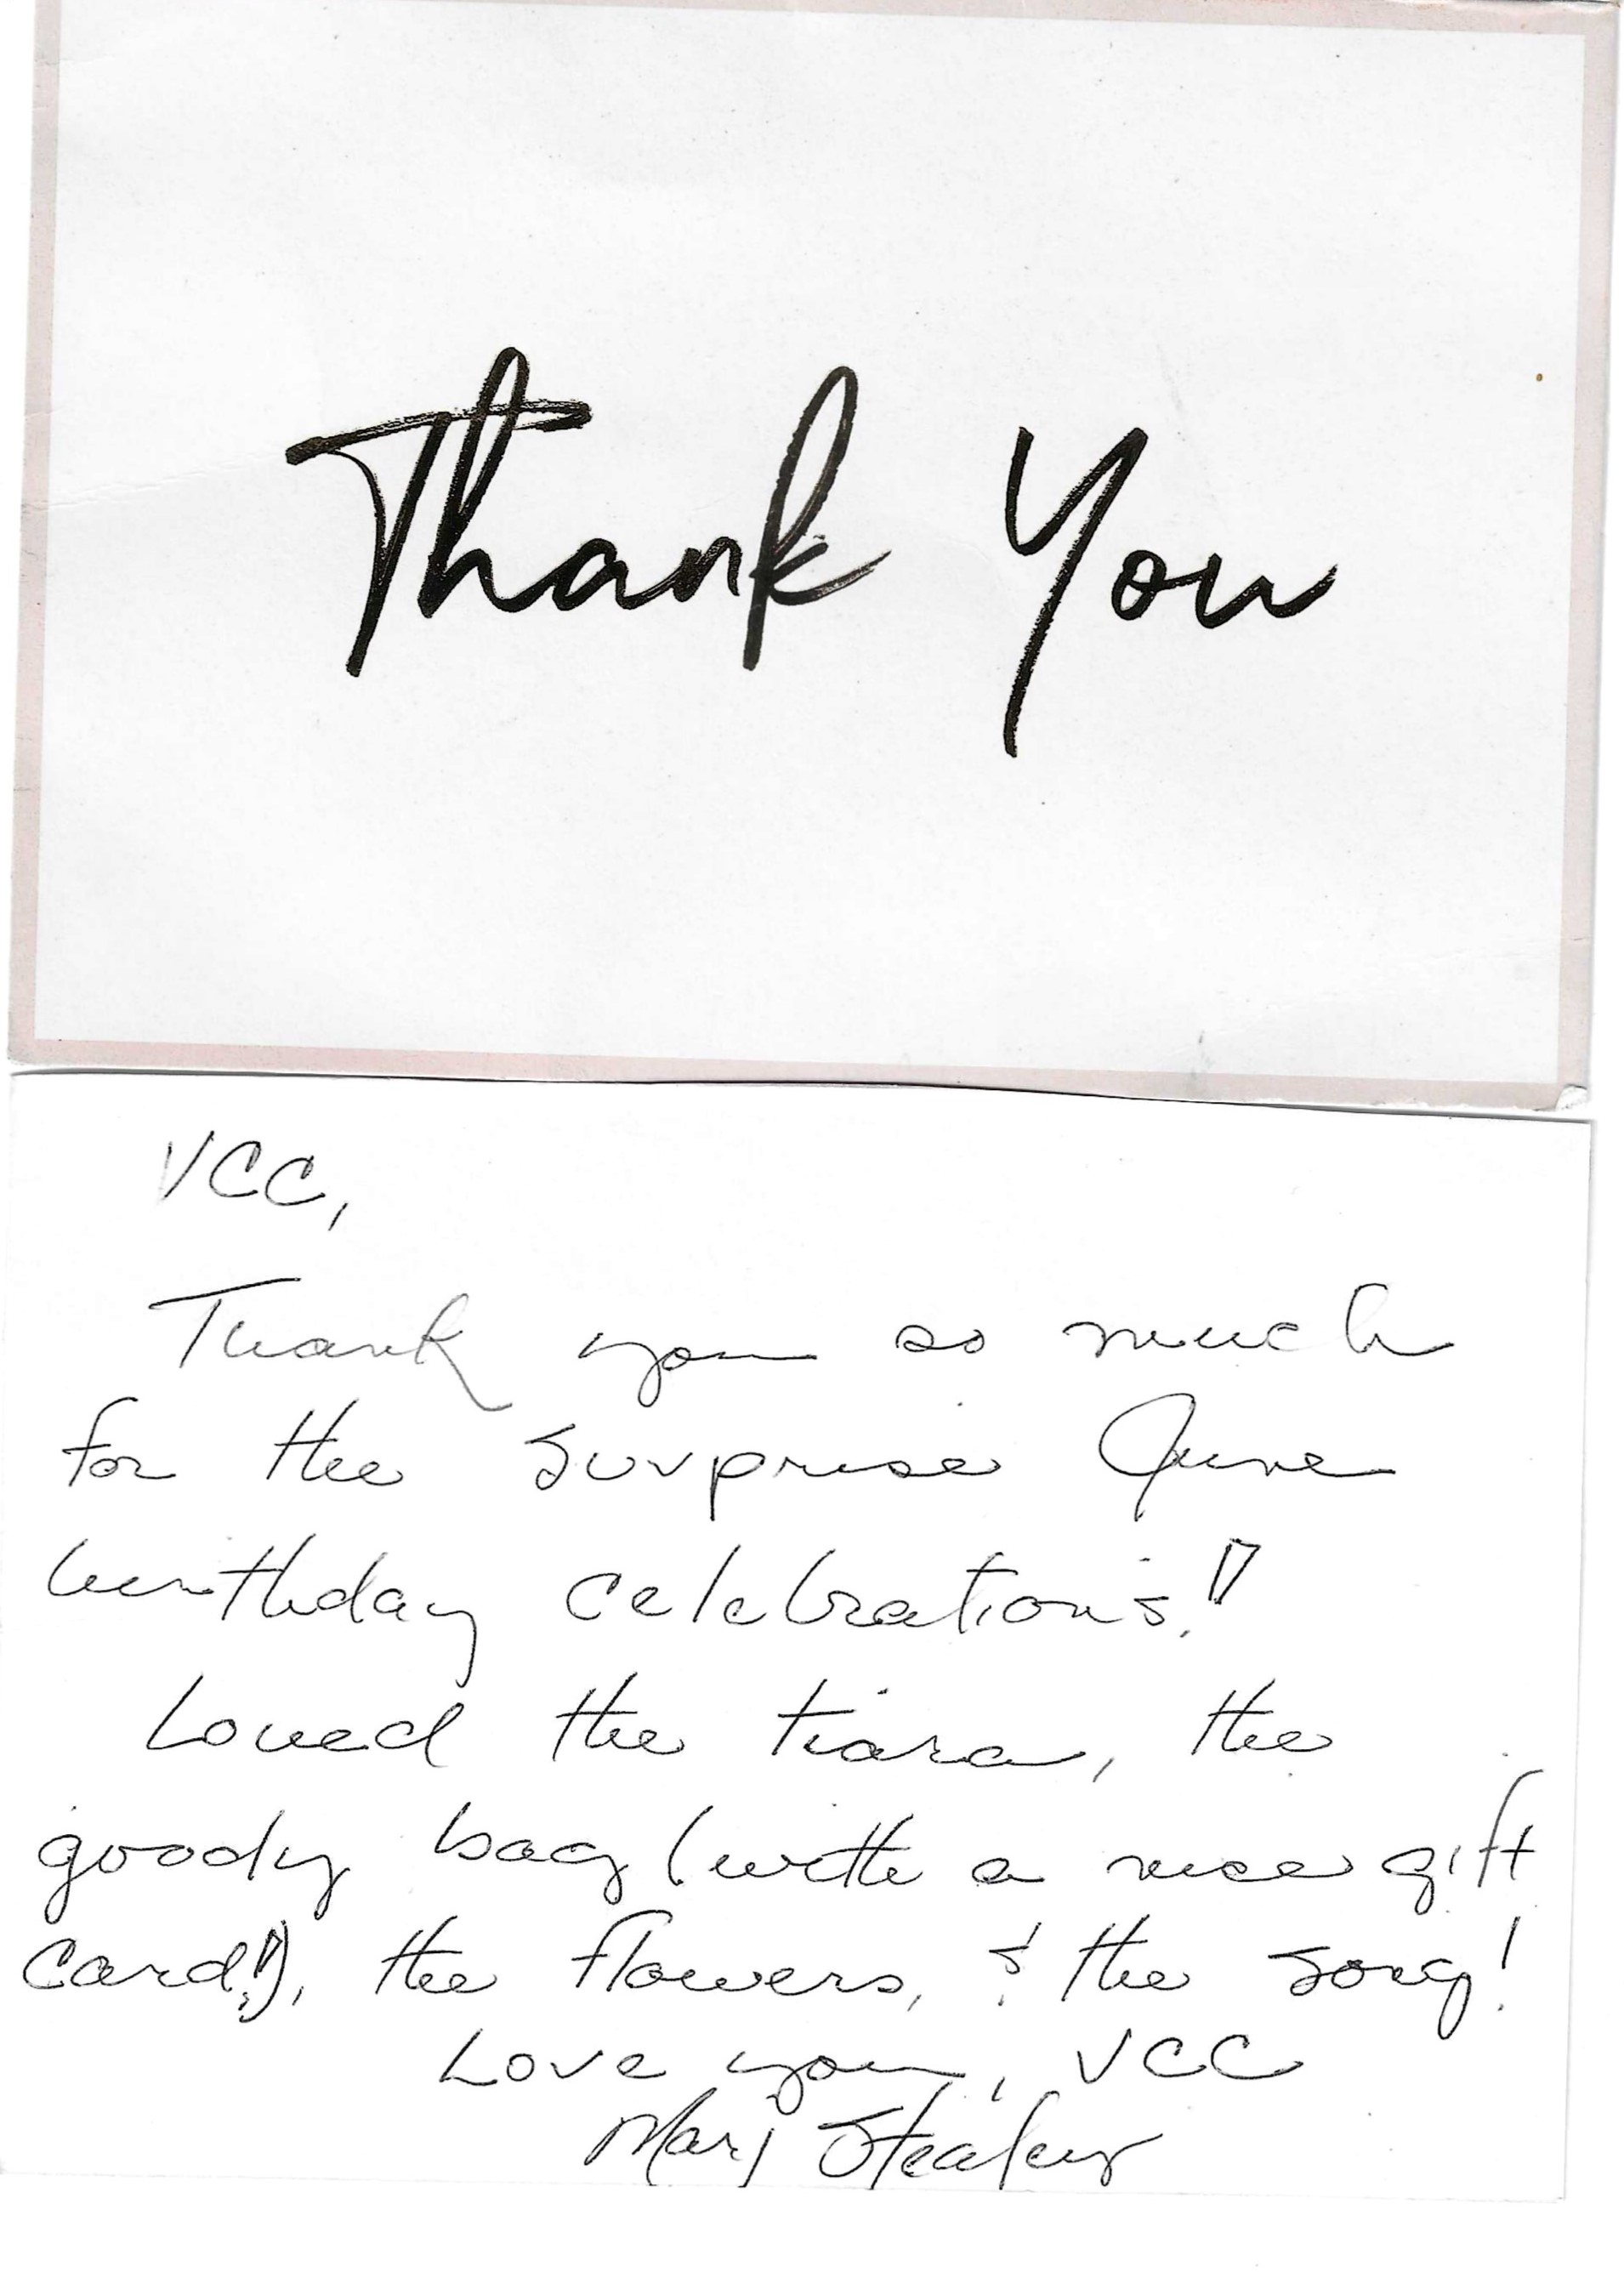 Thank You
VCC,
Thank you so much
for the surprise June
birthday celebrations!!
Loved the tiara, the
goody bag (with a nice gift
card!!), the flowers, & the song!
Love you, VCC
Mary Stealey